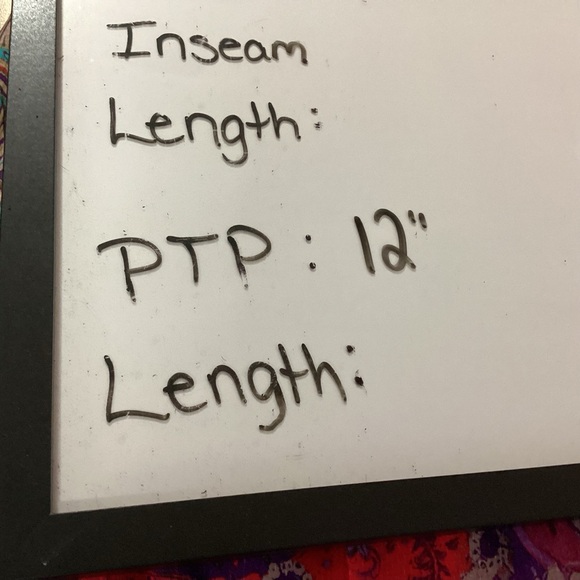 Inseam
Length:
PTP: 12"
Length: